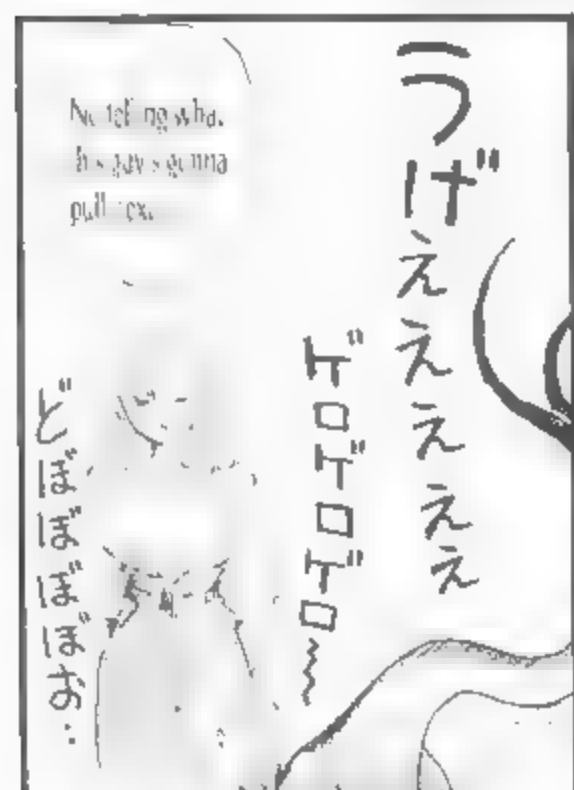 うげえええええ
ゲロゲロゲロ〜
No telling what
this guy's gonna
pull next.
どぼぼぼぼお‥